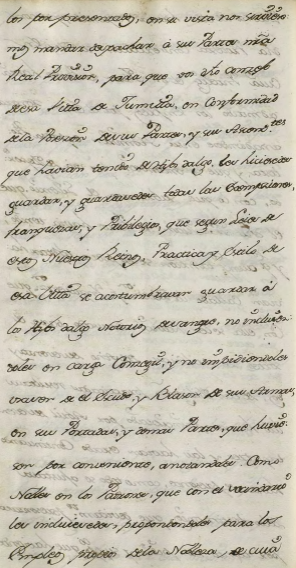 los por presentados, en su vista nos sirviese
mos mandar despachar à su Parte nrã
Real Provision, para que vos dho Conzejo
de esa Villa de Jumilla, en Conformidad
de la Poseson de sus Partes, y sus Ascendtes
que havian tenido de Hijos dalgo, les hiciesedes
guardar, y guardasedes todas las Exempciones,
franquezas, y Privilegios, que segun Leies de
estos Nuestros Reinos, Practica y Estilo de
esa Villa se acostumbravan guardar à
los Hijos dalgo Notorios de sangre, no incluien
doles en cargas Concegiles, y no impidiendoles
usasen de el Escudo, y Blason de sus Armas,
en sus Portadas, y demas Partes, que tuvie
sen por conveniente, anotandoles Como
Nobles en los Padrones, que con el vecindario
los incluiesedes, proponiendoles para los
Empleos propios de la Nobleza, de cuia